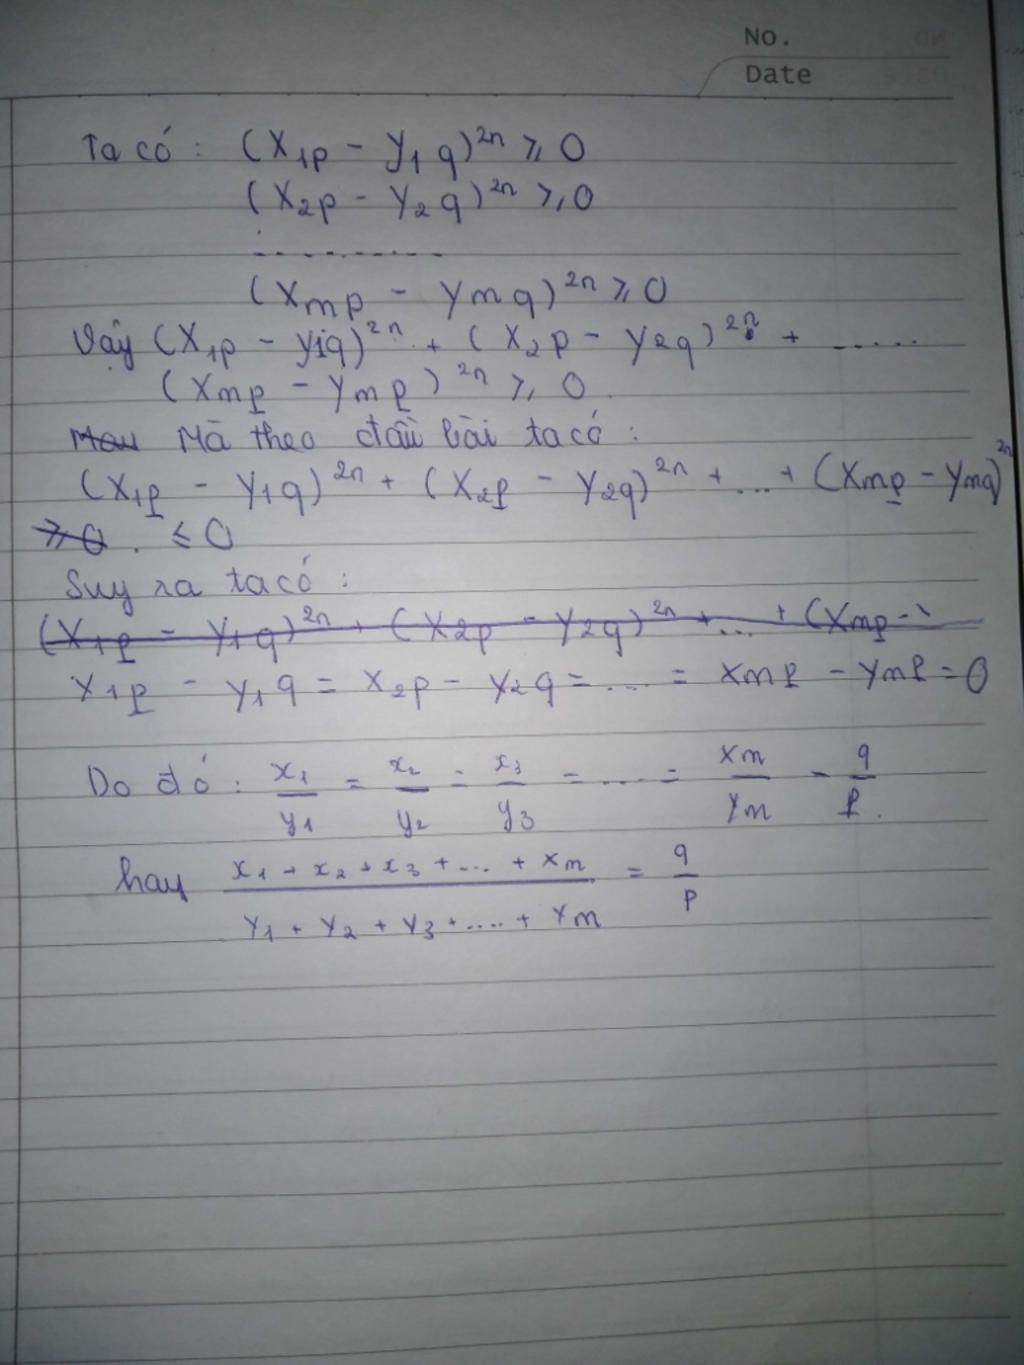 No.
Date
Ta có : (x₁p - y₁q)²ⁿ ≥ 0
(x₂p - y₂q)²ⁿ ≥ 0
..........
(xmp - ymq)²ⁿ ≥ 0
Vậy (x₁p - y₁q)²ⁿ + (x₂p - y₂q)²ⁿ + .....
(xmp - ymp)²ⁿ ≥ 0
Mà theo đầu bài ta có :
(x₁p - y₁q)²ⁿ + (x₂p - y₂q)²ⁿ + ... + (xmp - ymq)²ⁿ
≥ 0 . ≤ 0
Suy ra ta có :
(x₁p - y₁q)²ⁿ + (x₂p - y₂q)²ⁿ + ... + (xmp -
x₁p - y₁q = x₂p - y₂q = .... = xmp - ymp = 0
Do đó : x₁/y₁ = x₂/y₂ = x₃/y₃ = .... = xm/ym = q/p.
hay x₁ + x₂ + x₃ + ... + xm / y₁ + y₂ + y₃ + .... + ym = q/p